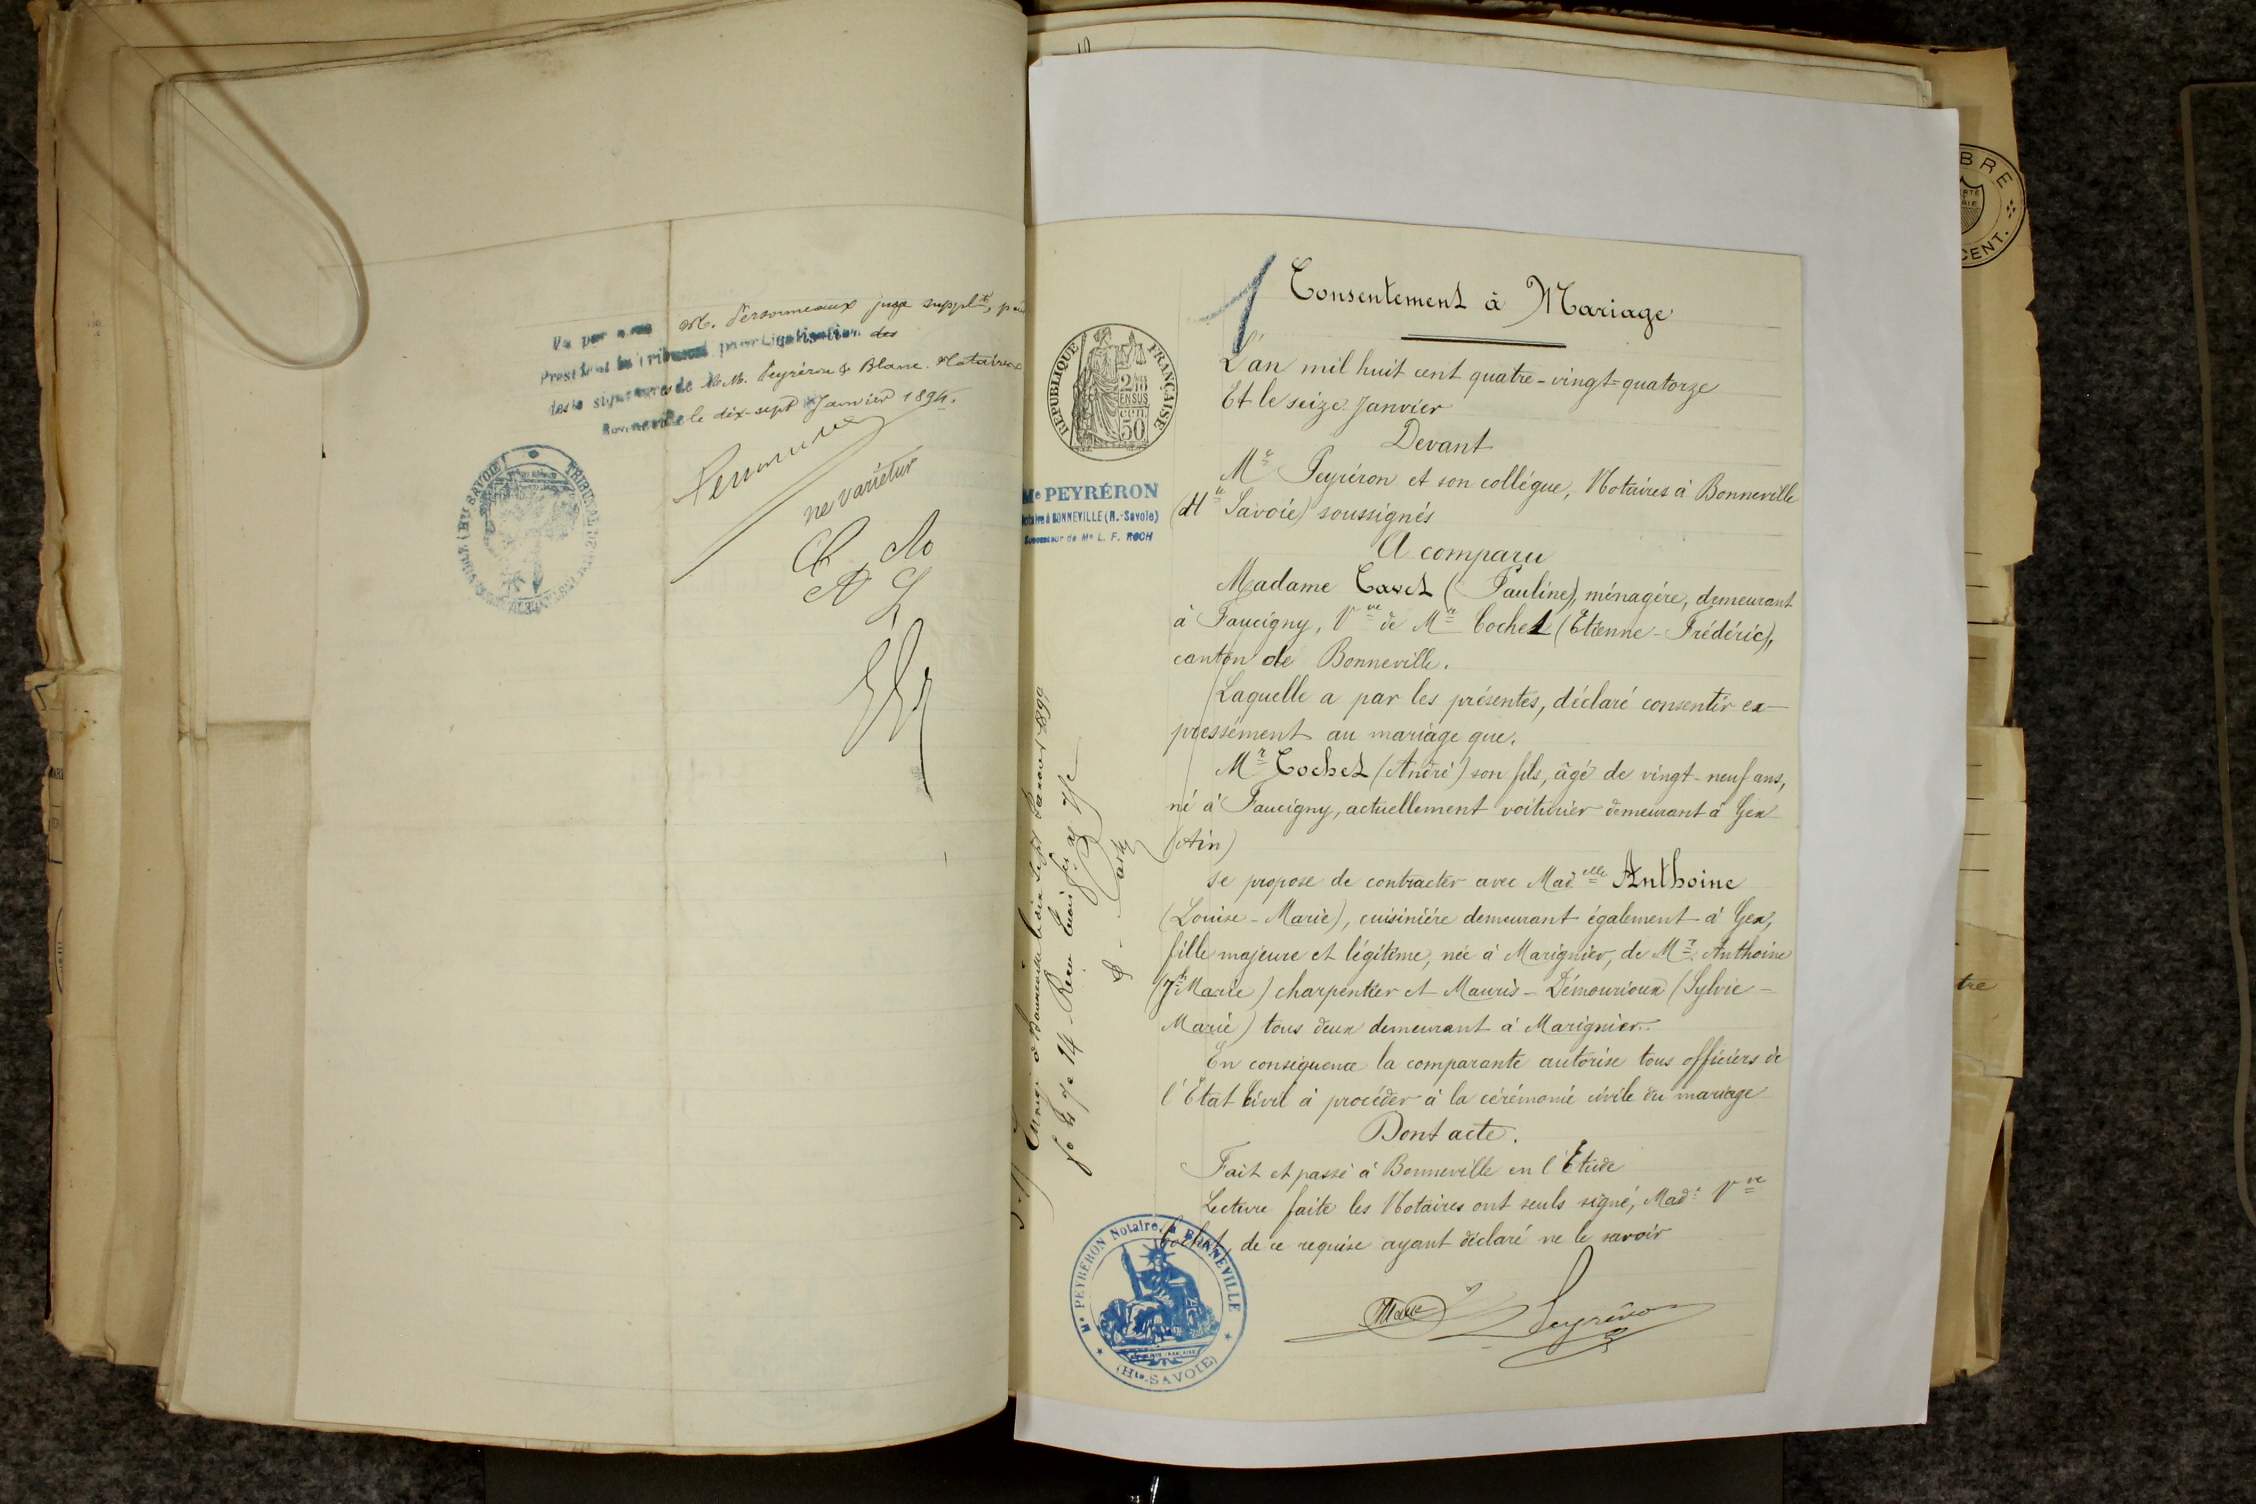 Vu par nous M. Personneaux juge supplt, pour
Président du Tribunal pour légalisation des
signatures de M. M. Peyréron & Blanc Notaires
Bonneville le dix-sept Janvier 1894.
TRIBUNAL DE 1ERE INSTANCE
ne varietur
1
Consentement à Mariage
L'an mil huit cent quatre-vingt-quatorze
Et le seize Janvier
Devant
RÉPUBLIQUE FRANÇAISE
2/10
EN SUS
50
CEN.
Mr Peyréron et son collégue, Notaires à Bonneville
(Hte Savoie) soussignés
Me PEYRÉRON
Notaire à BONNEVILLE (H.-Savoie)
Successeur de Me L. F. ROCH
A comparu
Madame Tavel (Pauline), ménagére, demeurant
à Faucigny, Vve de Mr Cochet (Etienne-Frédéric),
canton de Bonneville.
Laquelle a par les présentes, déclaré consentir ex-
pressément au mariage que.
Mr Cochet (André) son fils, âgé de vingt-neuf ans,
né à Faucigny, actuellement voiturier demeurant à Gex
(Ain)
Se propose de contracter avec Madelle Anthoine
(Louise-Marie), cuisiniére demeurant également à Gex,
fille majeure et légitime, née à Marignier, de Mr Anthoine
(Jh Marie) charpentier et Mauris-Démourioux (Sylvie-
Marie) tous deux demeurant à Marignier.
En conséquence la comparante autorise tous officiers de
l'Etat Civil à procéder à la cérémonie civile du mariage
Dont acte.
Fait et passé à Bonneville en l'Etude
Lecture faite les Notaires ont seuls signé, Made Vve
Cochet, de ce requise ayant déclaré ne le savoir
Peyréron
Me PEYRÉRON Notaire, à BONNEVILLE
(Hte-SAVOIE)
BRE
CENT.
tre